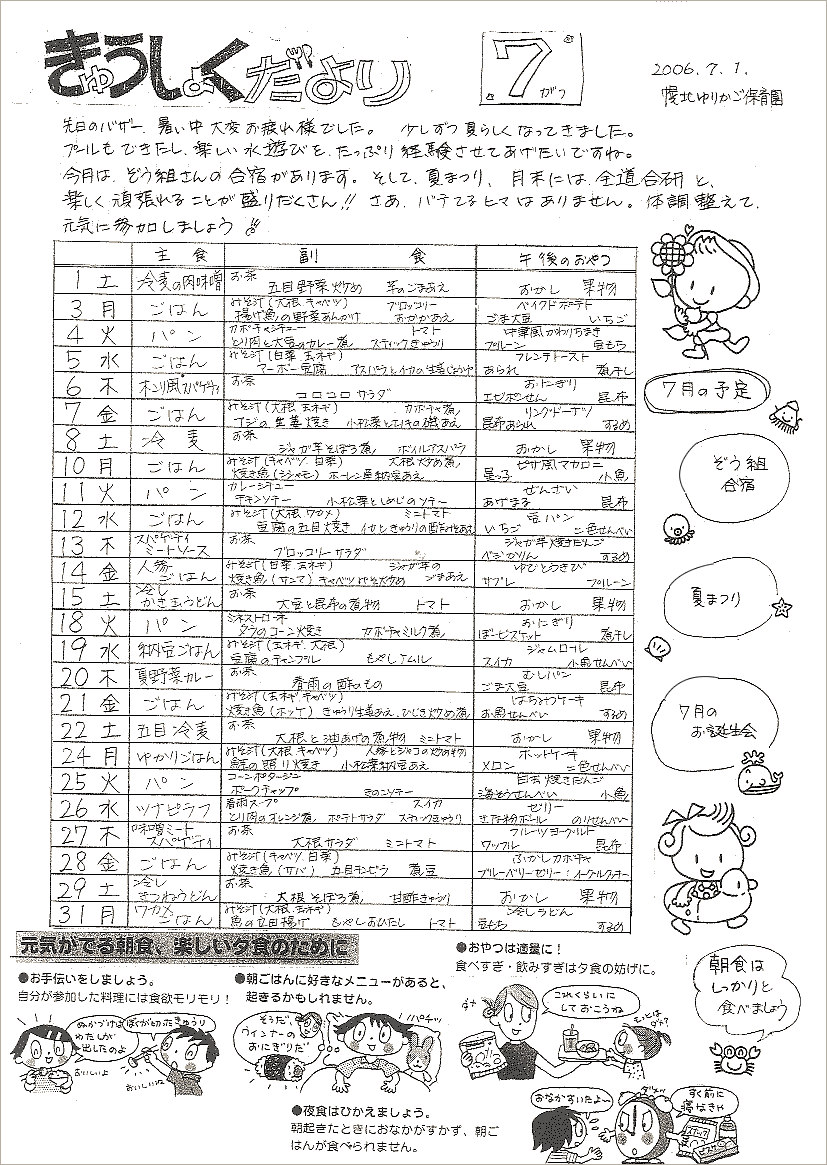 きゅうしょくだより
7がつ
2006.7.1.
幌北ゆりかご保育園
先日のバザー、暑い中大変お疲れ様でした。 少しずつ夏らしくなってきました。
プールもできたし、楽しい水遊びを、たっぷり経験させてあげたいですね。
今月は、ぞう組さんの合宿があります。そして、夏まつり、月末には、全道合研と、
楽しく頑張れることが盛りだくさん!! さあ、バテてるヒマはありません。体調整えて、
元気に参加しましょう!!
主食 副食 午後のおやつ
1 土 冷麦の肉味噌 お茶 五目野菜炒め 芋のごまあえ おかし 果物
3 月 ごはん みそ汁(大根、キャベツ) ブロッコリー 揚げ魚の野菜あんかけ おかかあえ ベイクドポテト ごま大豆 いちご
4 火 パン カボチャシチュー トマト とり肉と大豆のカレー煮 スティックきゅうり 中華風かわりちまき プルーン 豆もち
5 水 ごはん みそ汁(白菜、玉ネギ) マーボー豆腐 アスパラとイカの生姜じょうゆ フレンチトースト あられ 煮干し
6 木 スパゲティ お茶 コロコロサラダ おにぎり エビポンせん 昆布
7 金 ごはん みそ汁(大根、玉ネギ) カボチャ煮 アジの生姜焼き 小松菜との煮あえ リングドーナツ 昆布あられ するめ
8 土 冷麦 お茶 ジャガ芋そぼろ煮 ボイルアスパラ おかし 果物
10 月 ごはん みそ汁(キャベツ、白菜) 大根炒め煮 焼き魚(シシャモ) ホーレン草納豆あえ ピザ風マカロニ 星っ子 小魚
11 火 パン カレーシチュー チキンソテー 小松菜としめじのソテー ぜんざい あげまる 昆布
12 水 ごはん みそ汁(大根、ワカメ) ミニトマト 豆腐の五目焼き イカときゅうりの酢みそあえ 豆パン いちご 二色せんべい
13 木 スパゲティミートソース お茶 ブロッコリーサラダ ジャガ芋焼きだんご ベジかりん するめ
14 金 人参ごはん みそ汁(白菜、玉ネギ) ジャガ芋のごまあえ 焼き魚(サンマ) キャベツみそ炒め ゆでとうきび サブレ プルーン
15 土 冷しかき玉うどん お茶 大豆と昆布の煮物 トマト おかし 果物
18 火 パン ミネストローネ タラのコーン焼き カボチャミルク煮 おにぎり ぼービスケット 煮干し
19 水 納豆ごはん みそ汁(玉ネギ、大根) 豆腐のチャンプル もやしナムル ジャムロール スイカ 小魚せんべい
20 木 夏野菜カレー お茶 春雨の酢のもの むしパン ごま大豆 昆布
21 金 ごはん みそ汁(玉ネギ、キャベツ) 焼き魚(ホッケ) きゅうり生姜あえ、ひじき炒め煮 はちみつケーキ お魚せんべい するめ
22 土 五目冷麦 お茶 大根と油あげの煮物 ミニトマト おかし 果物
24 月 ゆかりごはん みそ汁(大根、キャベツ) 人参とジャコの炒め物 鮭の照り焼き 小松菜納豆あえ ホットケーキ メロン 二色せんべい
25 火 パン コーンポタージュ ポークチャップ きのこソテー 白玉焼きだんご 海そうせんべい 小魚
26 水 ツナピラフ 春雨スープ スイカ とり肉のオレンジ煮 ポテトサラダ スティックきゅうり ゼリー きな粉ボール のりせんべい
27 木 味噌ミートスパゲティ お茶 大根サラダ ミニトマト フルーツヨーグルト ワッフル 昆布
28 金 ごはん みそ汁(キャベツ、白菜) 焼き魚(サバ) 五目キンピラ 煮豆 ふかしカボチャ ブルーベリーゼリー
29 土 冷しきつねうどん お茶 大根そぼろ煮 甘酢きゅうり おかし 果物
31 月 ワカメごはん みそ汁(大根、玉ネギ) 魚の五目揚げ もやしおひたし トマト 冷しうどん 豆もち するめ
7月の予定
ぞう組
合宿
夏まつり
7月の
お誕生会
朝食は
しっかりと
食べましょう
元気がでる朝食、楽しい夕食のために
●お手伝いをしましょう。
自分が参加した料理には食欲モリモリ!
ぬかづけは
わたしが
出したのよ
おいしいよ
ぼくが切ったきゅうり
おいしいね
●朝ごはんに好きなメニューがあると、
起きるかもしれません。
そうだ、
ウインナーの
おにぎりだ
パチッ
●夜食はひかえましょう。
朝起きたときにおなかがすかず、朝ご
はんが食べられません。
●おやつは適量に!
食べすぎ・飲みすぎは夕食の妨げに。
これくらいに
しておこうね
もっとほしいな?
おなかすいたよ〜
ダメッ
すぐ前に
寝なきゃ